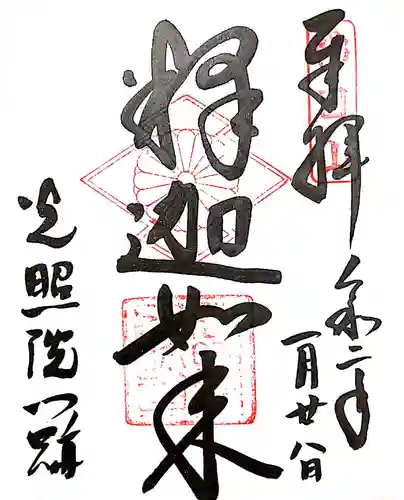 奉拝
令二年
一月廿八日
釋迦如来
光照院門跡